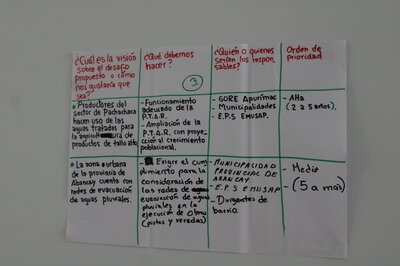 ¿Cuál es la visión
sobre el desafío
propuesto o cómo
nos gustaría que
sea?
¿Qué debemos
hacer?
3
¿Quién o quienes
serían los respon
sables?
Orden de
prioridad
* Productores del
sector de Pachachaca
hacen uso de las
aguas tratados para
la agricultura de
productos de tallo alto.
- Funcionamiento
adecuado de la
P.T.A.R.
- Ampliación de la
P.T.A.R, con proye-
cción al crecimiento
poblacional.
- GORE Apurímac
- Municipalidades
- E.P.S EMUSAP.
- Alta
(2 a 5 años).
* La zona urbana
de la provincia de
Abancay cuenta con
redes de evacuación
de aguas pluviales.
- Exigir el cum
plimiento para la
consideración de
las redes de
evacuación de aguas
pluviales en la
ejecución de obras
(pistas y veredas)
- MUNICIPALIDAD
PROVINCIAL DE
ABANCAY
- E.P.S EMUSAP.
- Dirigentes de
barrio.
- Media
- (5 a más)